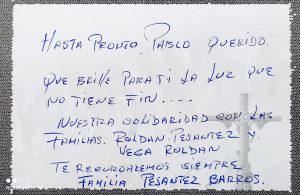 HASTA PRONTO, PABLO QUERIDO.
QUE BRILLE PARA TI LA LUZ QUE
NO TIENE FIN....
NUESTRA SOLIDARIDAD CON LAS
FAMILIAS. ROLDAN PESANTEZ Y
VEGA ROLDAN
TE RECORDAREMOS SIEMPRE
FAMILIA PESANTEZ BARROS.